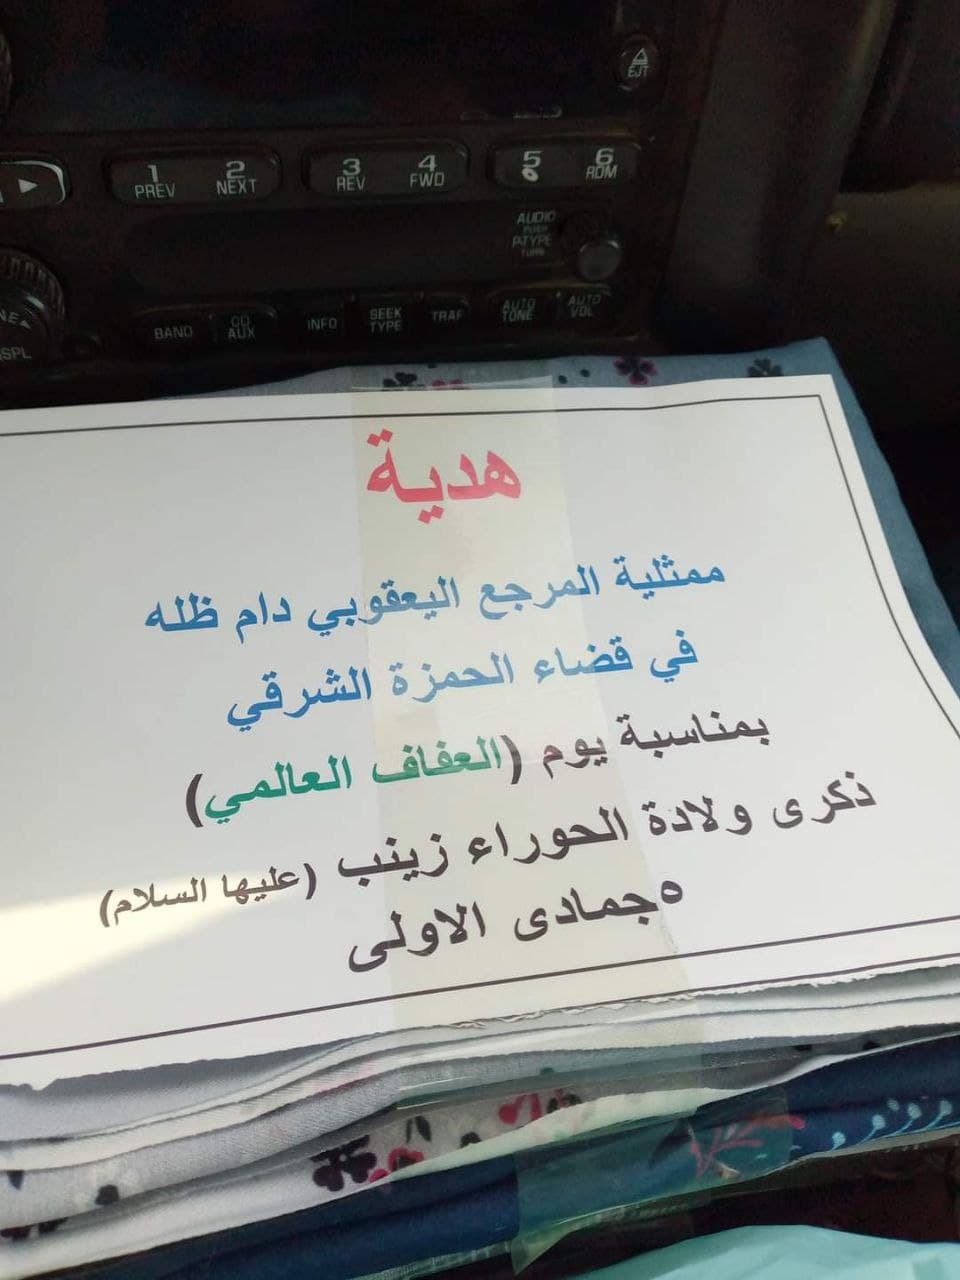 EJT
1 PREV 2 NEXT 3 REV 4 FWD 5 6 RDM
AUDIO
PUSH
P-TYPE
TUNE
BAND CD AUX INFO SEEK TYPE TRAF AUTO TONE AUTO VOL
هدية
ممثلية المرجع اليعقوبي دام ظله
في قضاء الحمزة الشرقي
بمناسبة يوم (العفاف العالمي)
ذكرى ولادة الحوراء زينب (عليها السلام)
٥جمادى الاولى